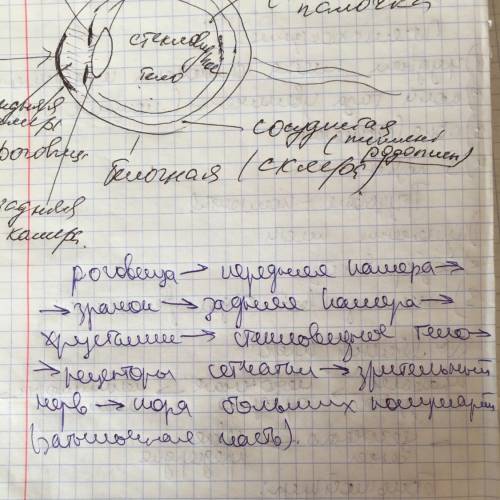 палочка
стекловидное
тело
роговица
сосудистая
(пигмент
родопсин)
белочная (склера)
задняя
камера.
роговица → передняя камера →
→ зрачок → задняя камера →
хрусталик → стекловидное тело →
→ рецепторы сетчатки → зрительный
нерв → кора больших полушарий
(затылочная часть).